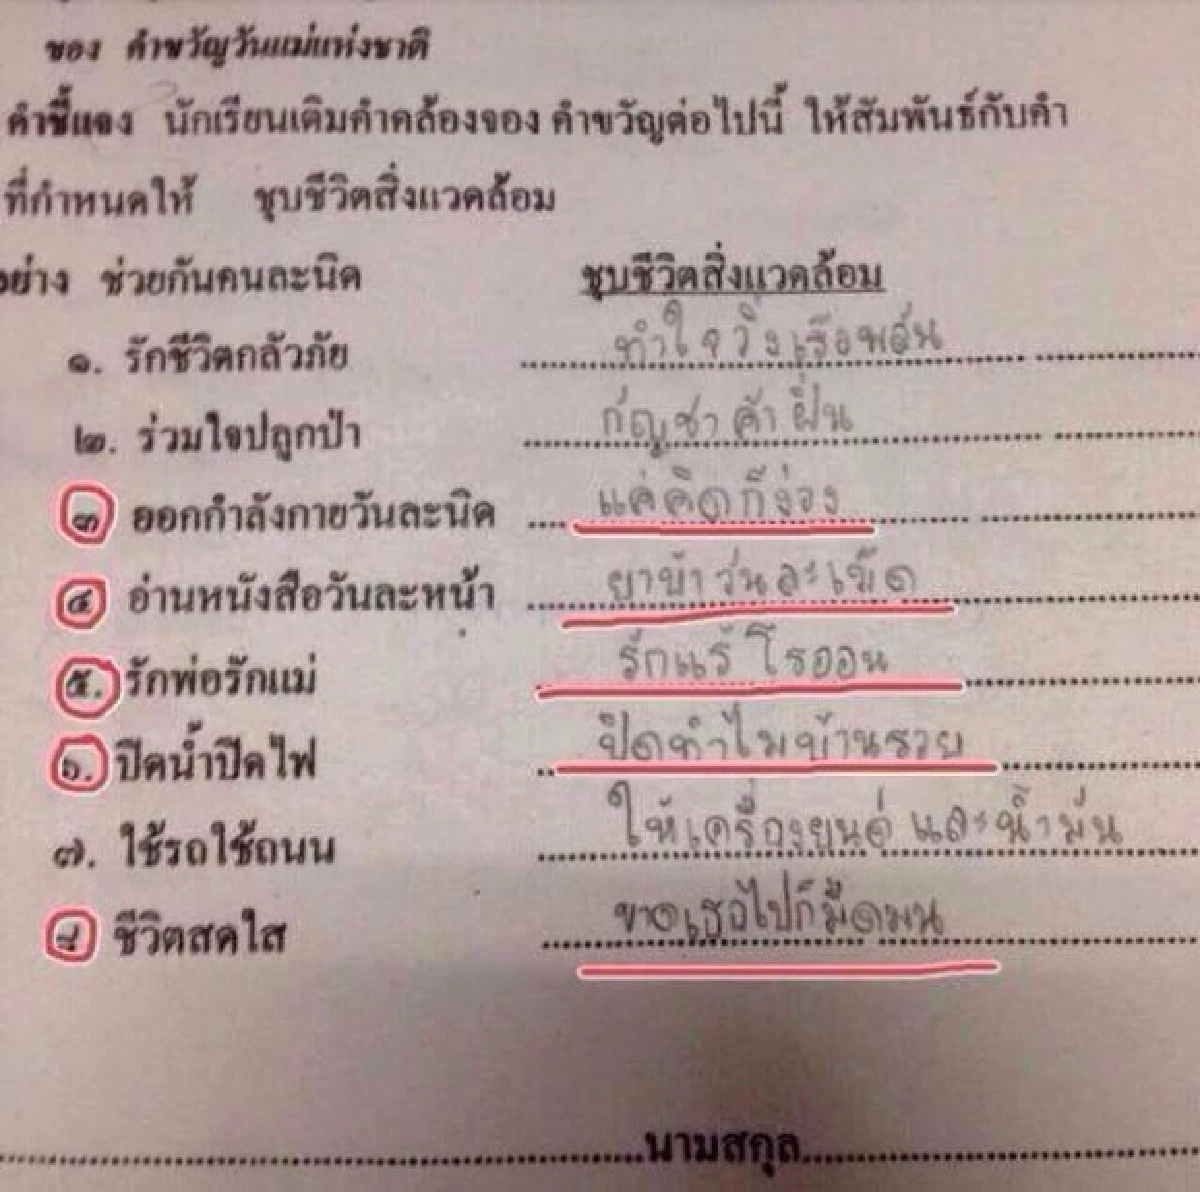 ของ คำขวัญวันแม่แห่งชาติ
คำชี้แจง นักเรียนเติมคำคล้องจอง คำขวัญต่อไปนี้ ให้สัมพันธ์กับคำ
ที่กำหนดให้ ชุบชีวิตสิ่งแวดล้อม
อย่าง ช่วยกันคนละนิด ชุบชีวิตสิ่งแวดล้อม
๑. รักชีวิตกลัวภัย ทำใจวิ่ง
๒. ร่วมใจปลูกป่า กัญชา ค้า ฝิ่น
๓ ออกกำลังกายวันละนิด แค่คิดก็ง่วง
๔ อ่านหนังสือวันละหน้า ยาบ้าวันละเม็ด
๕. รักพ่อรักแม่ รักแร้ โรออน
๖. ปิดน้ำปิดไฟ ปิดทำไมบ้านรวย
๗. ใช้รถใช้ถนน ให้เครื่องยนต์ และน้ำมัน
๘ ชีวิตสดใส ขาดเธอไปก็มืดมน
นามสกุล